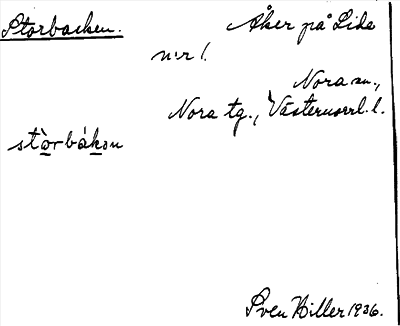 Storbacken. Åker på Lide
n:r 1.
Nora sn.,
Nora tg., Västernorrl. l.
stòrbákən
Sven Hiller 1936.